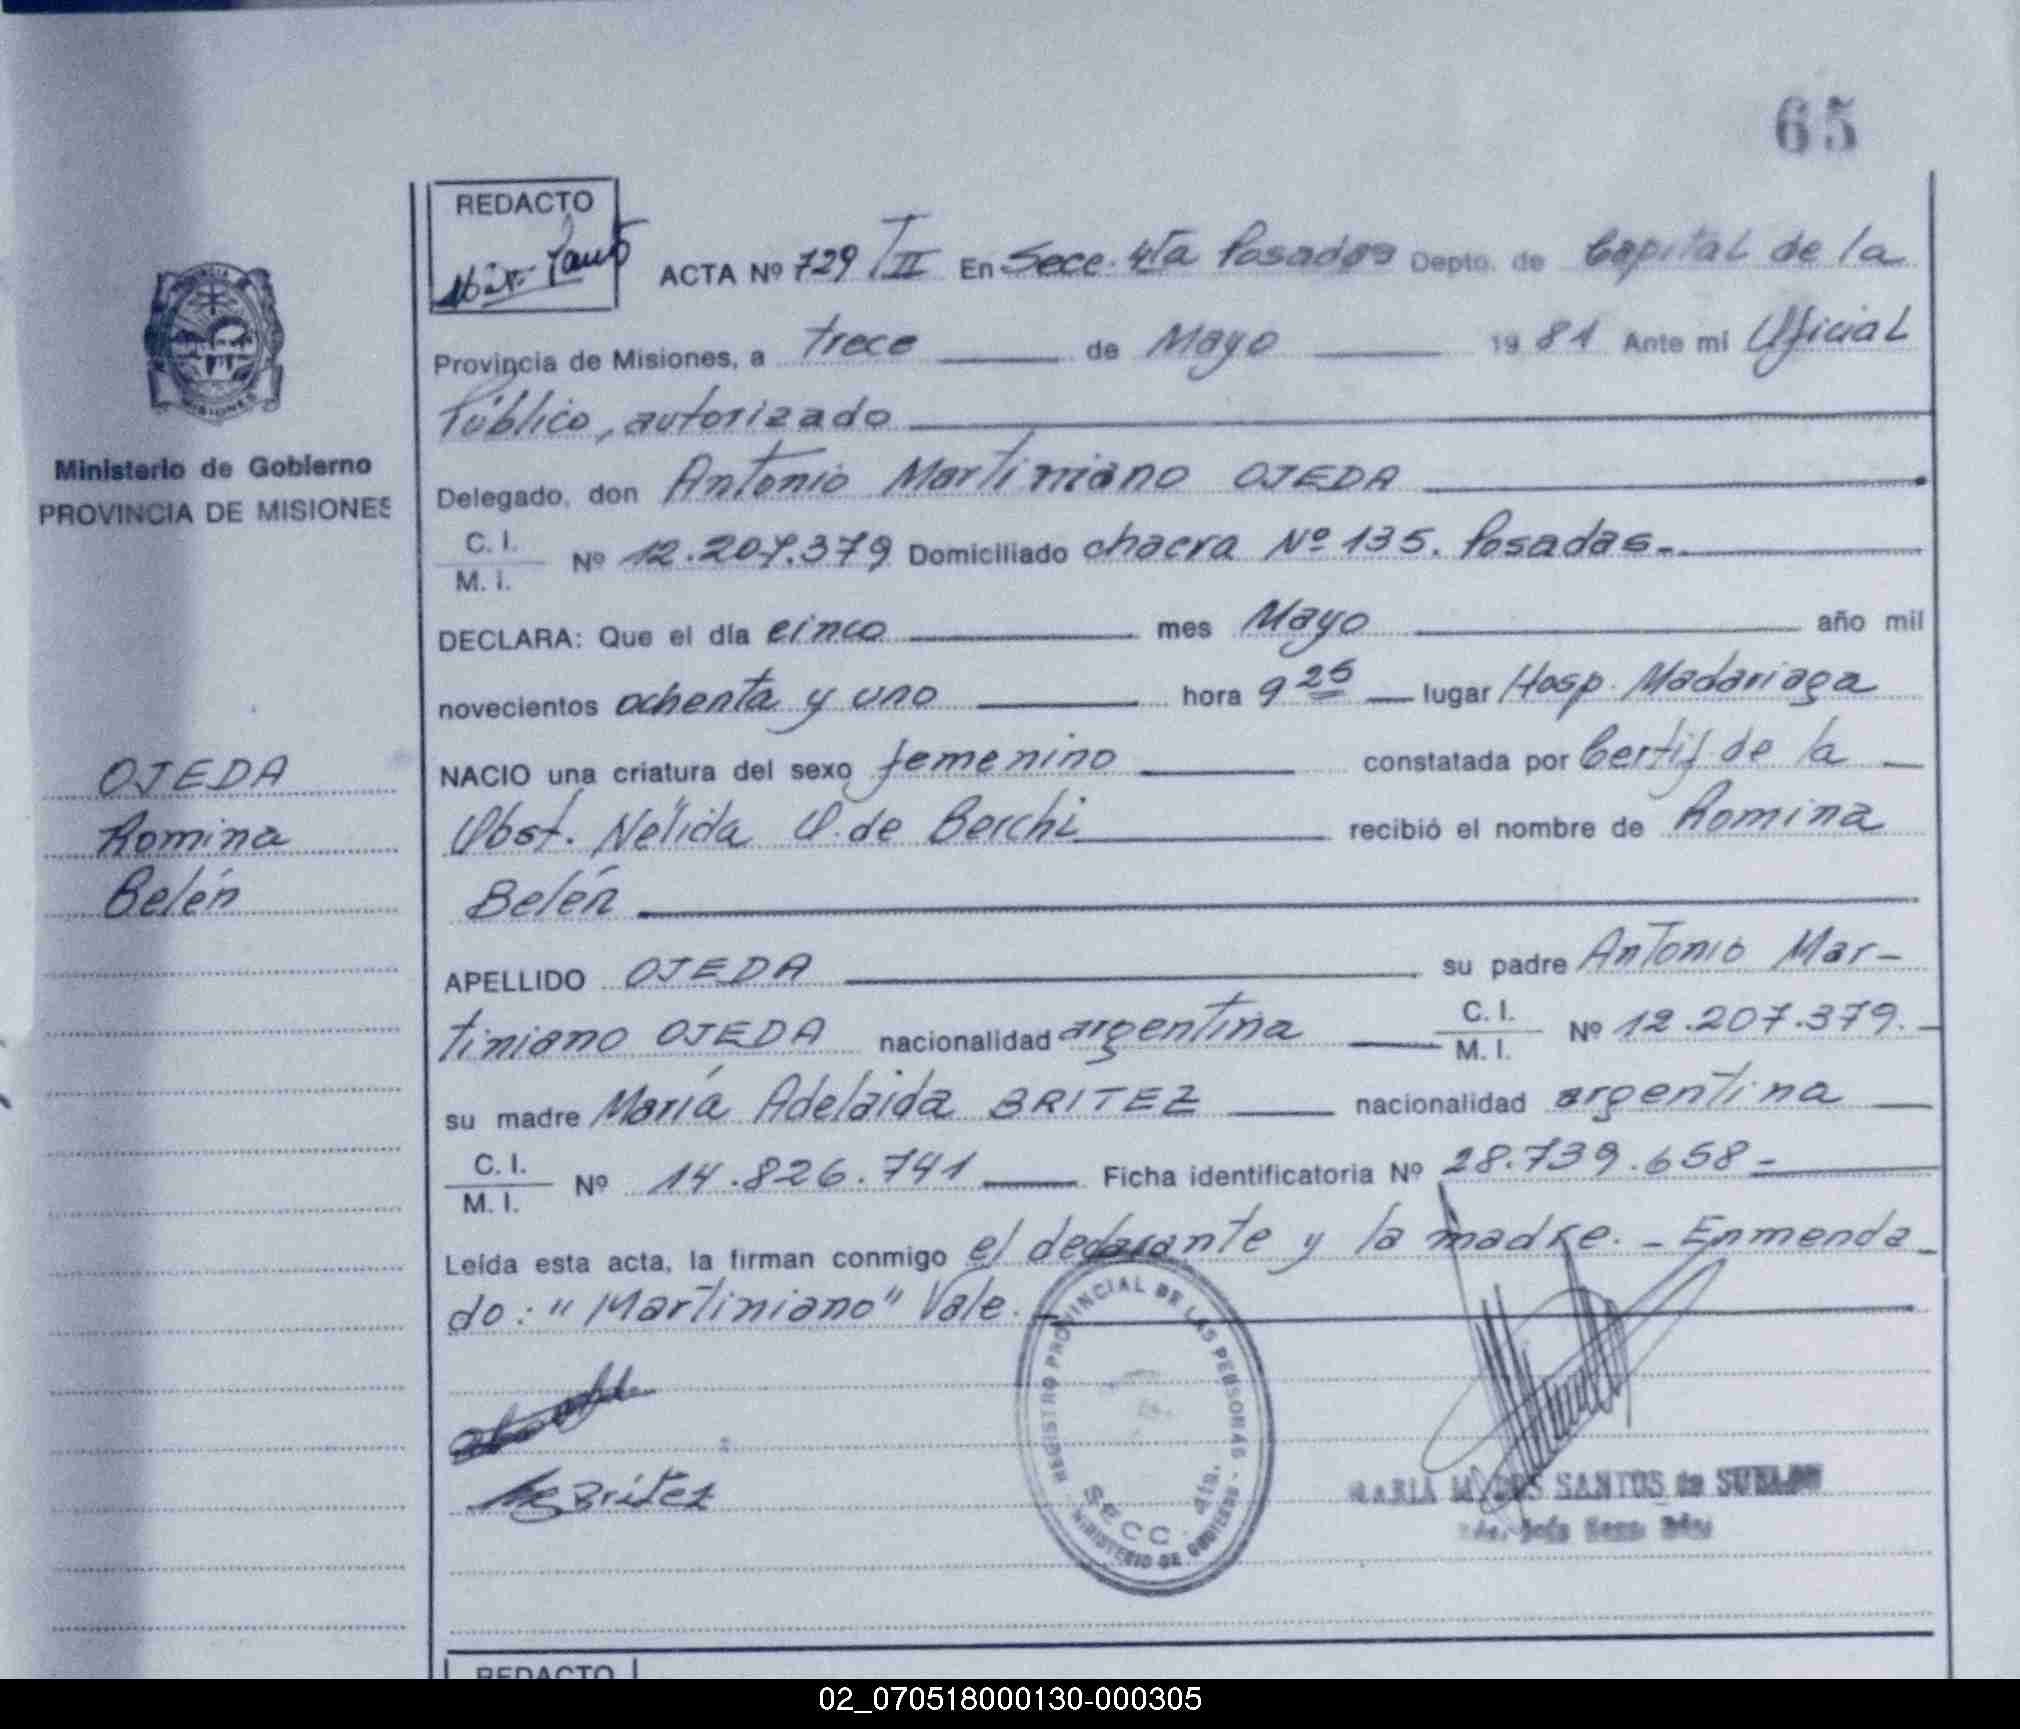 65
REDACTO
ACTA Nº 729 T II En Secc. 4ta Posadas Depto. de Capital de la
Provincia de Misiones, a trece de Mayo 1981 Ante mi Oficial
Público, autorizado
Delegado, don Antonio Martiniano OJEDA
C. I.
M. I.
Nº 12.207.379 Domiciliado chacra Nº 135. Posadas.-
DECLARA: Que el día cinco mes Mayo año mil
novecientos ochenta y uno hora 9 25 lugar Hosp. Madariaga
NACIO una criatura del sexo femenino constatada por Certif. de la
Obst. Nélida O. de Berchi recibió el nombre de Romina
Belén
APELLIDO OJEDA su padre Antonio Mar-
tiniano OJEDA nacionalidad argentina C. I. M. I. Nº 12.207.379.-
su madre María Adelaida BRITEZ nacionalidad argentina
C. I.
M. I.
Nº 14.826.741 Ficha identificatoria Nº 28.739.658-
Leída esta acta, la firman conmigo el declarante y la madre. - Enmenda
do: "Martiniano" Vale.-
Britez
REGISTRO PROVINCIAL DE LAS PERSONAS - MINISTERIO DE GOBIERNO
SECC. 4ta.
MARIA M. DOS SANTOS de
MISIONES
Ministerio de Gobierno
PROVINCIA DE MISIONES
OJEDA
Romina
Belén
REDACTO
02_070518000130-000305